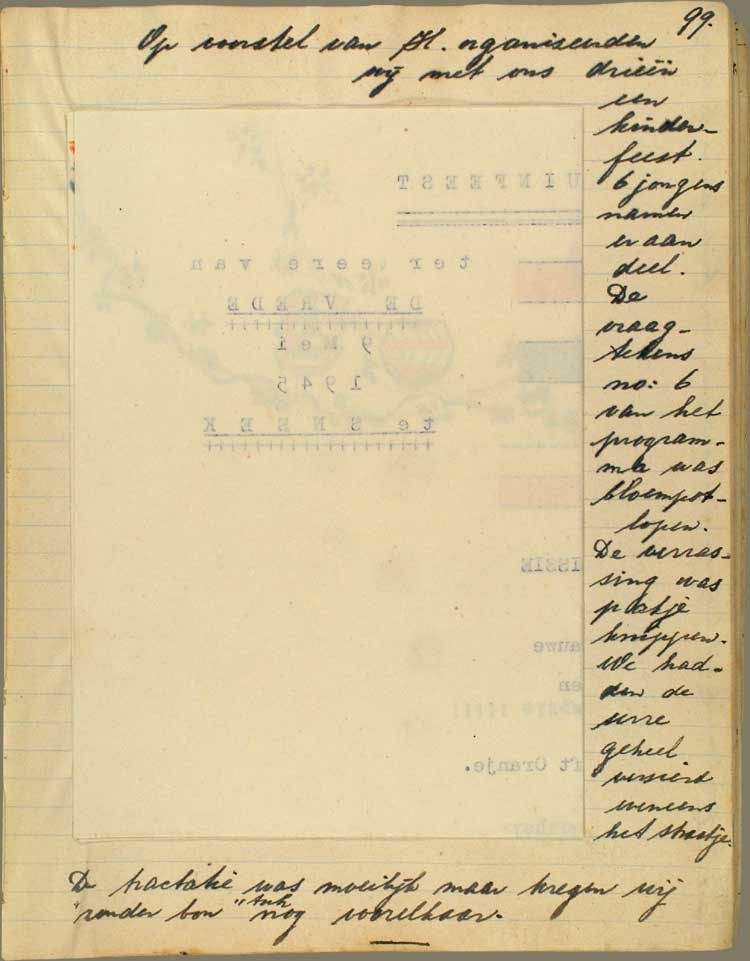 99.
Op voorstel van H. organiseerden
wij met ons drieën
een
kinder-
feest.
6 jongens
namen
er aan
deel.
De
vraag-
tekens
no: 6
van het
program-
ma was
bloempot-
lopen.
De verras-
sing was
pakje
knippen.
We had-
den de
serre
geheel
versierd
eveneens
het straatje.
UINFEEST
ter eere van
DE VREDE
9 Mei
1945
te SNEEK
ISSIE
auwe
en
ft Oranje.
De tractatie was moeilijk maar kregen wij
"zonder bon" nog voorelkaar.